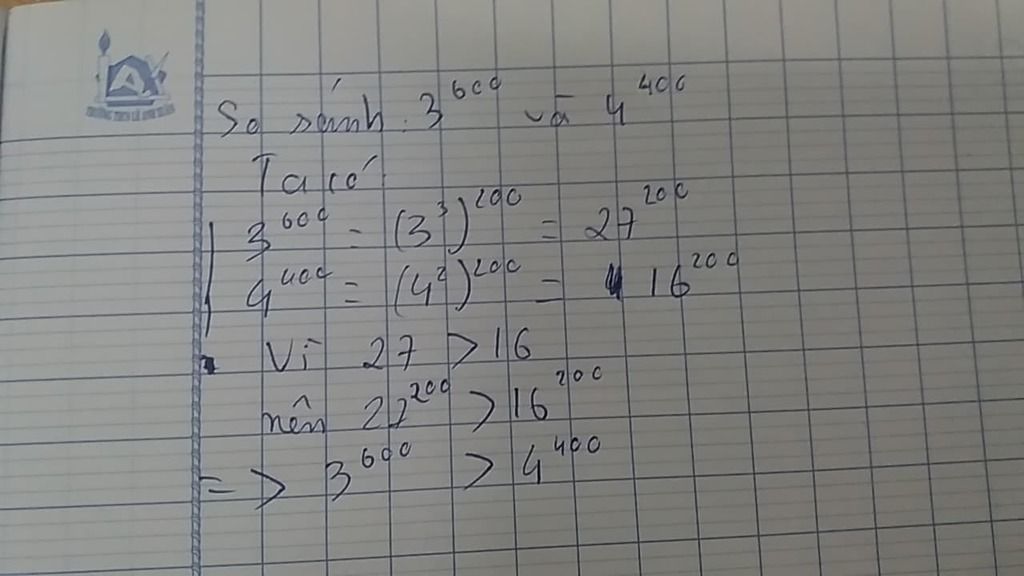 So sánh: 3^600 và 4^400
Ta có
3^600 = (3^3)^200 = 27^200
4^400 = (4^2)^200 = 16^200
Vì 27 > 16
nên 22^200 > 16^200
=> 3^600 > 4^400